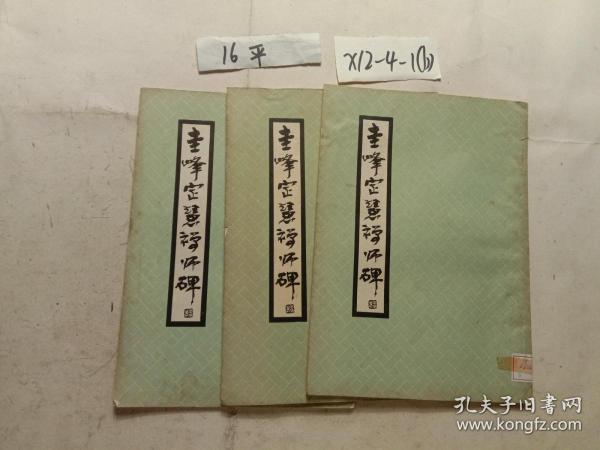 16平
X12-4-1(1)
圭峰定慧禅师碑
圭峰定慧禅师碑
圭峰定慧禅师碑
孔夫子旧书网
www.kongfz.com